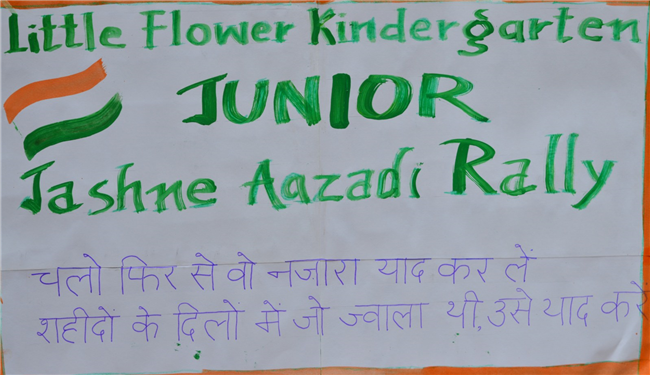 Little Flower Kindergarten
JUNIOR
Jashne Aazadi Rally
चलो फिर से वो नजारा याद कर लें
शहीदों के दिलों में जो ज्वाला थी, उसे याद करे